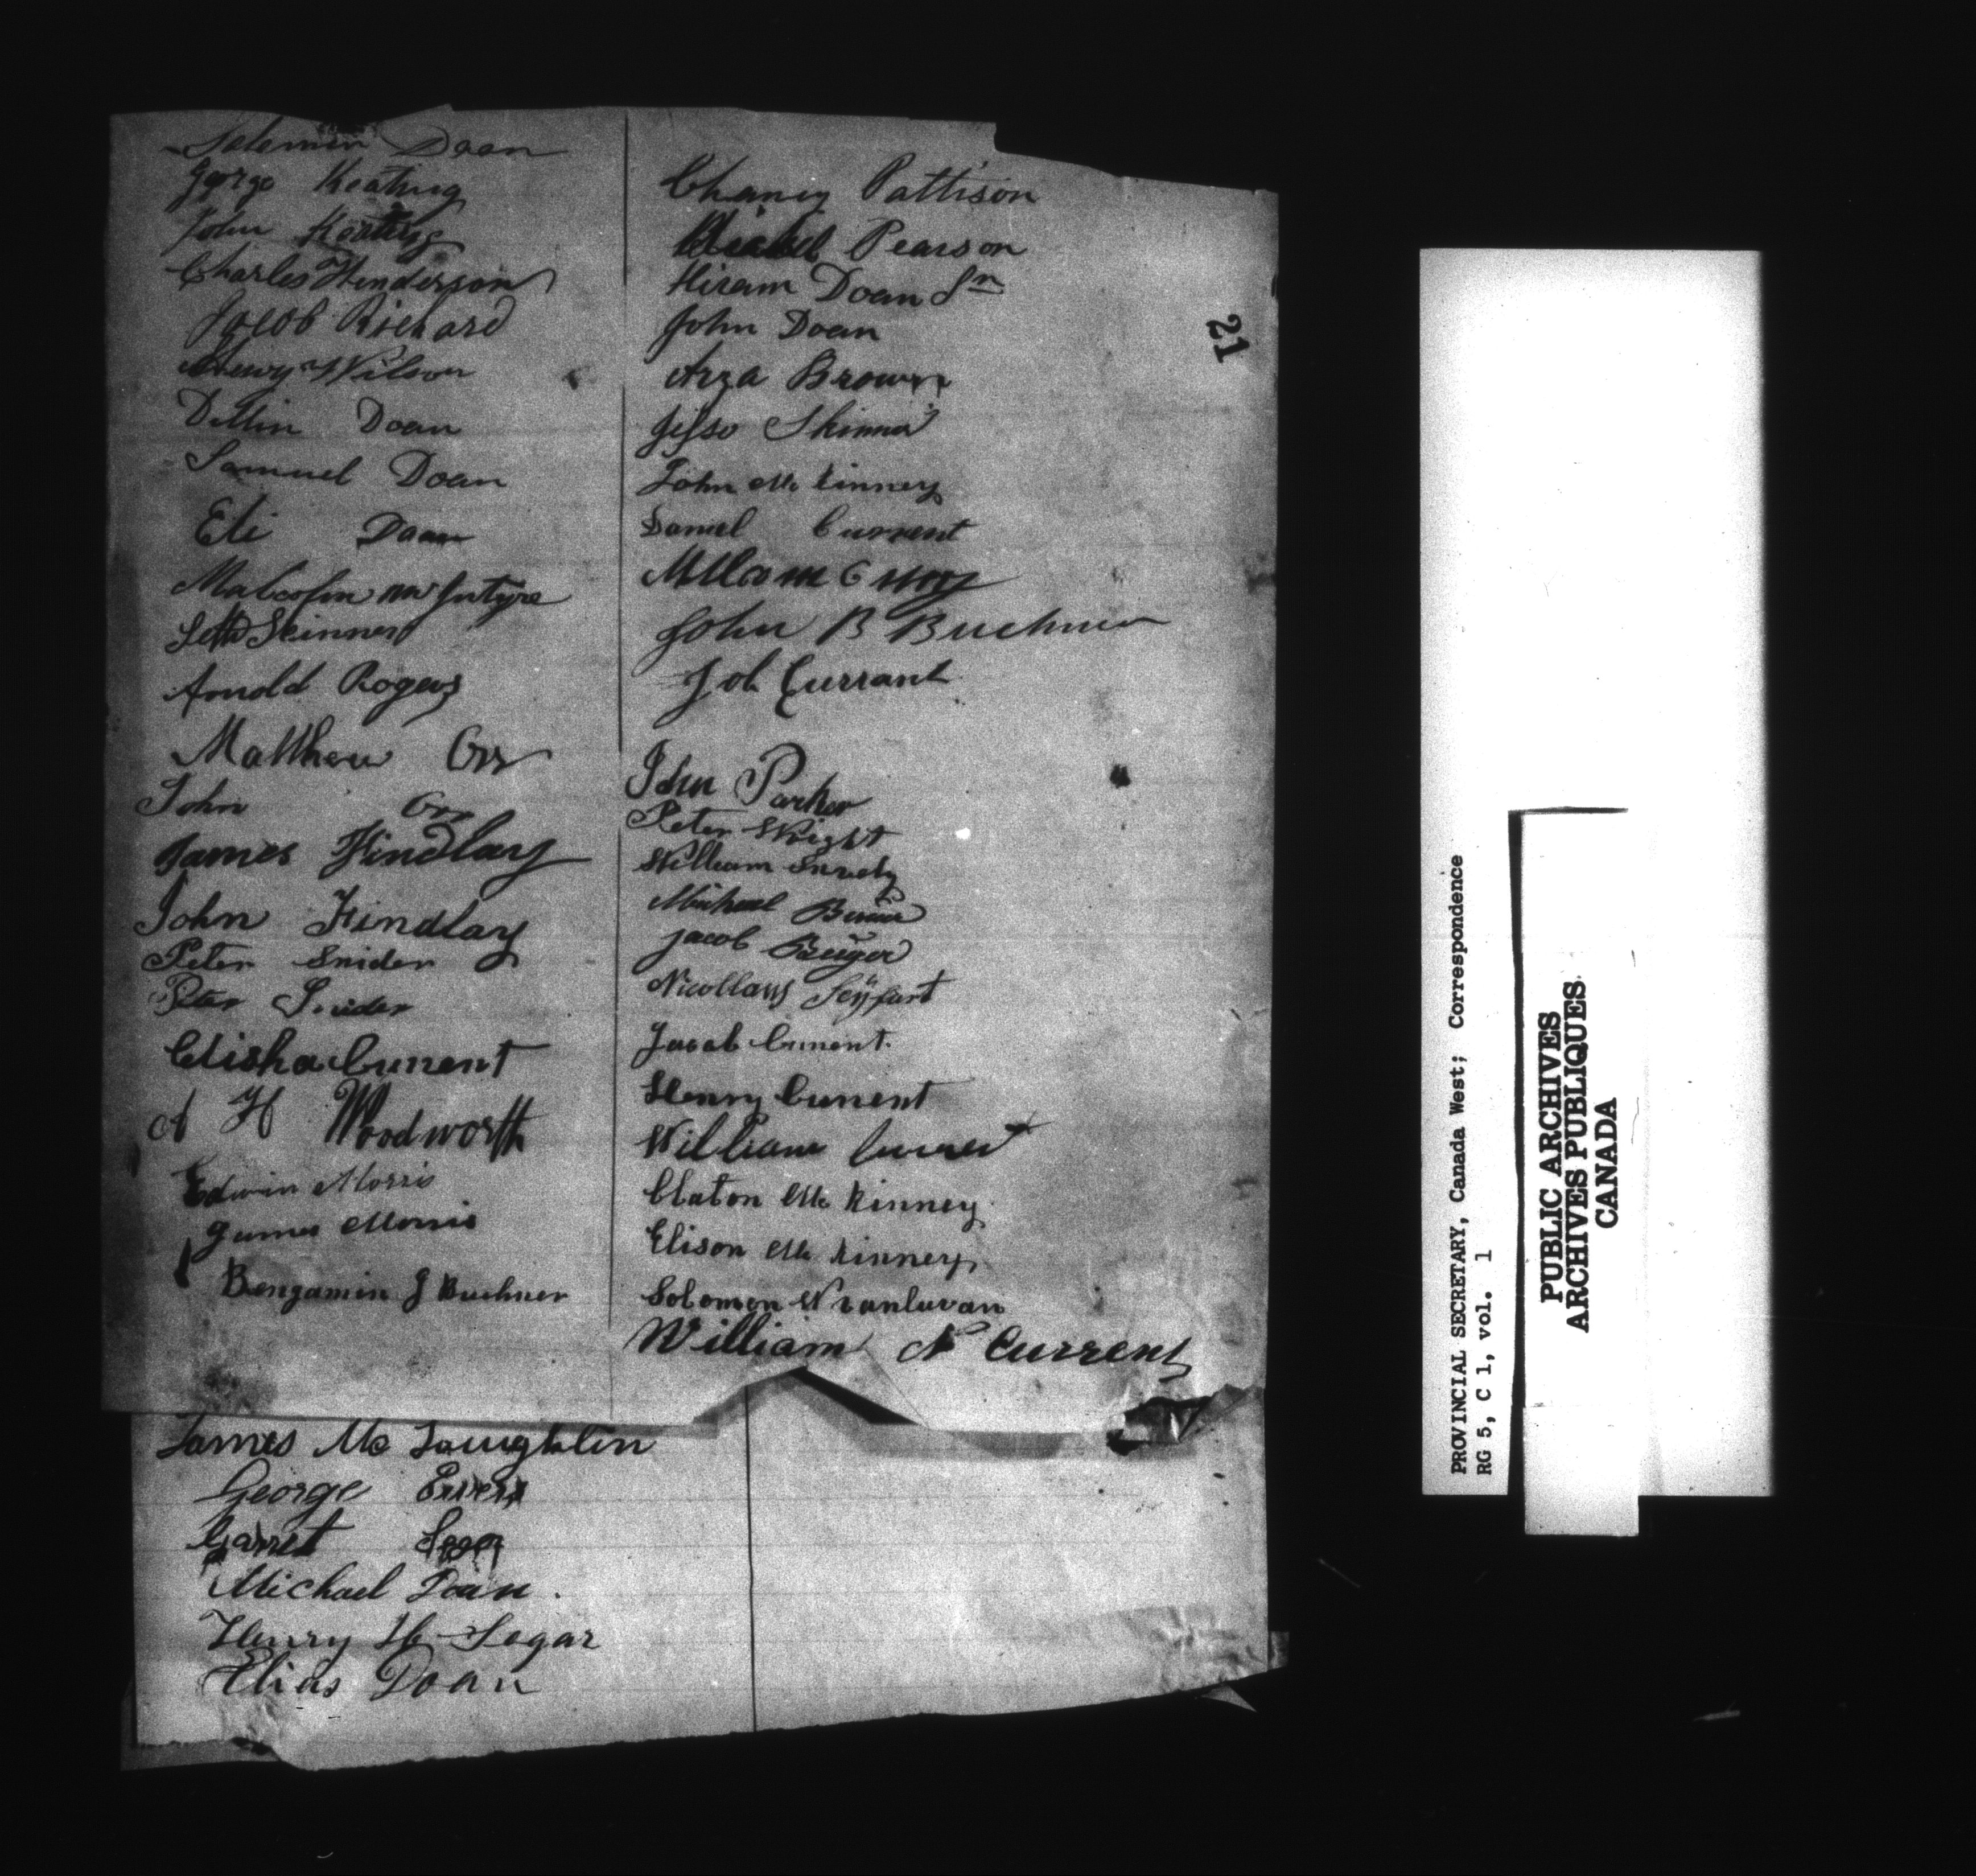 Solomon Doan
George Keating
John Keating
Charles Henderson
Jacob Richard
Wilson
Dillin Doan
Samuel Doan
Eli Doan
Malcolm McIntyre
Seth Skinner
Arnold Rogers
Matthew Orr
John Orr
James Findlay
John Findlay
Peter Snider
Peter Snider
Elisha Current
A H Woodworth
Edwin Morris
James Morris
Bengamin J Buchner
Chancy Pattison
Pearson
Hiram Doan Sr
John Doan
Arza Brown
Jesse Skinner
John Mc Kinney
Daniel Current
John B Buchner
Job Currant
John Parker
Peter Wright
William
Michael
Jacob
Nicollaus Seÿfart
Jacob Current.
Henry Current
William Current
Claton Mc Kinney
Elison Mc Kinney
Solomon W vanluvan
William N Current
James Mc Laughlin
George
Garret
Michael Doan.
Henry H Segar
Elias Doan
21
PROVINCIAL SECRETARY, Canada West; Correspondence
RG 5, C 1, vol. 1
PUBLIC ARCHIVES
ARCHIVES PUBLIQUES
CANADA